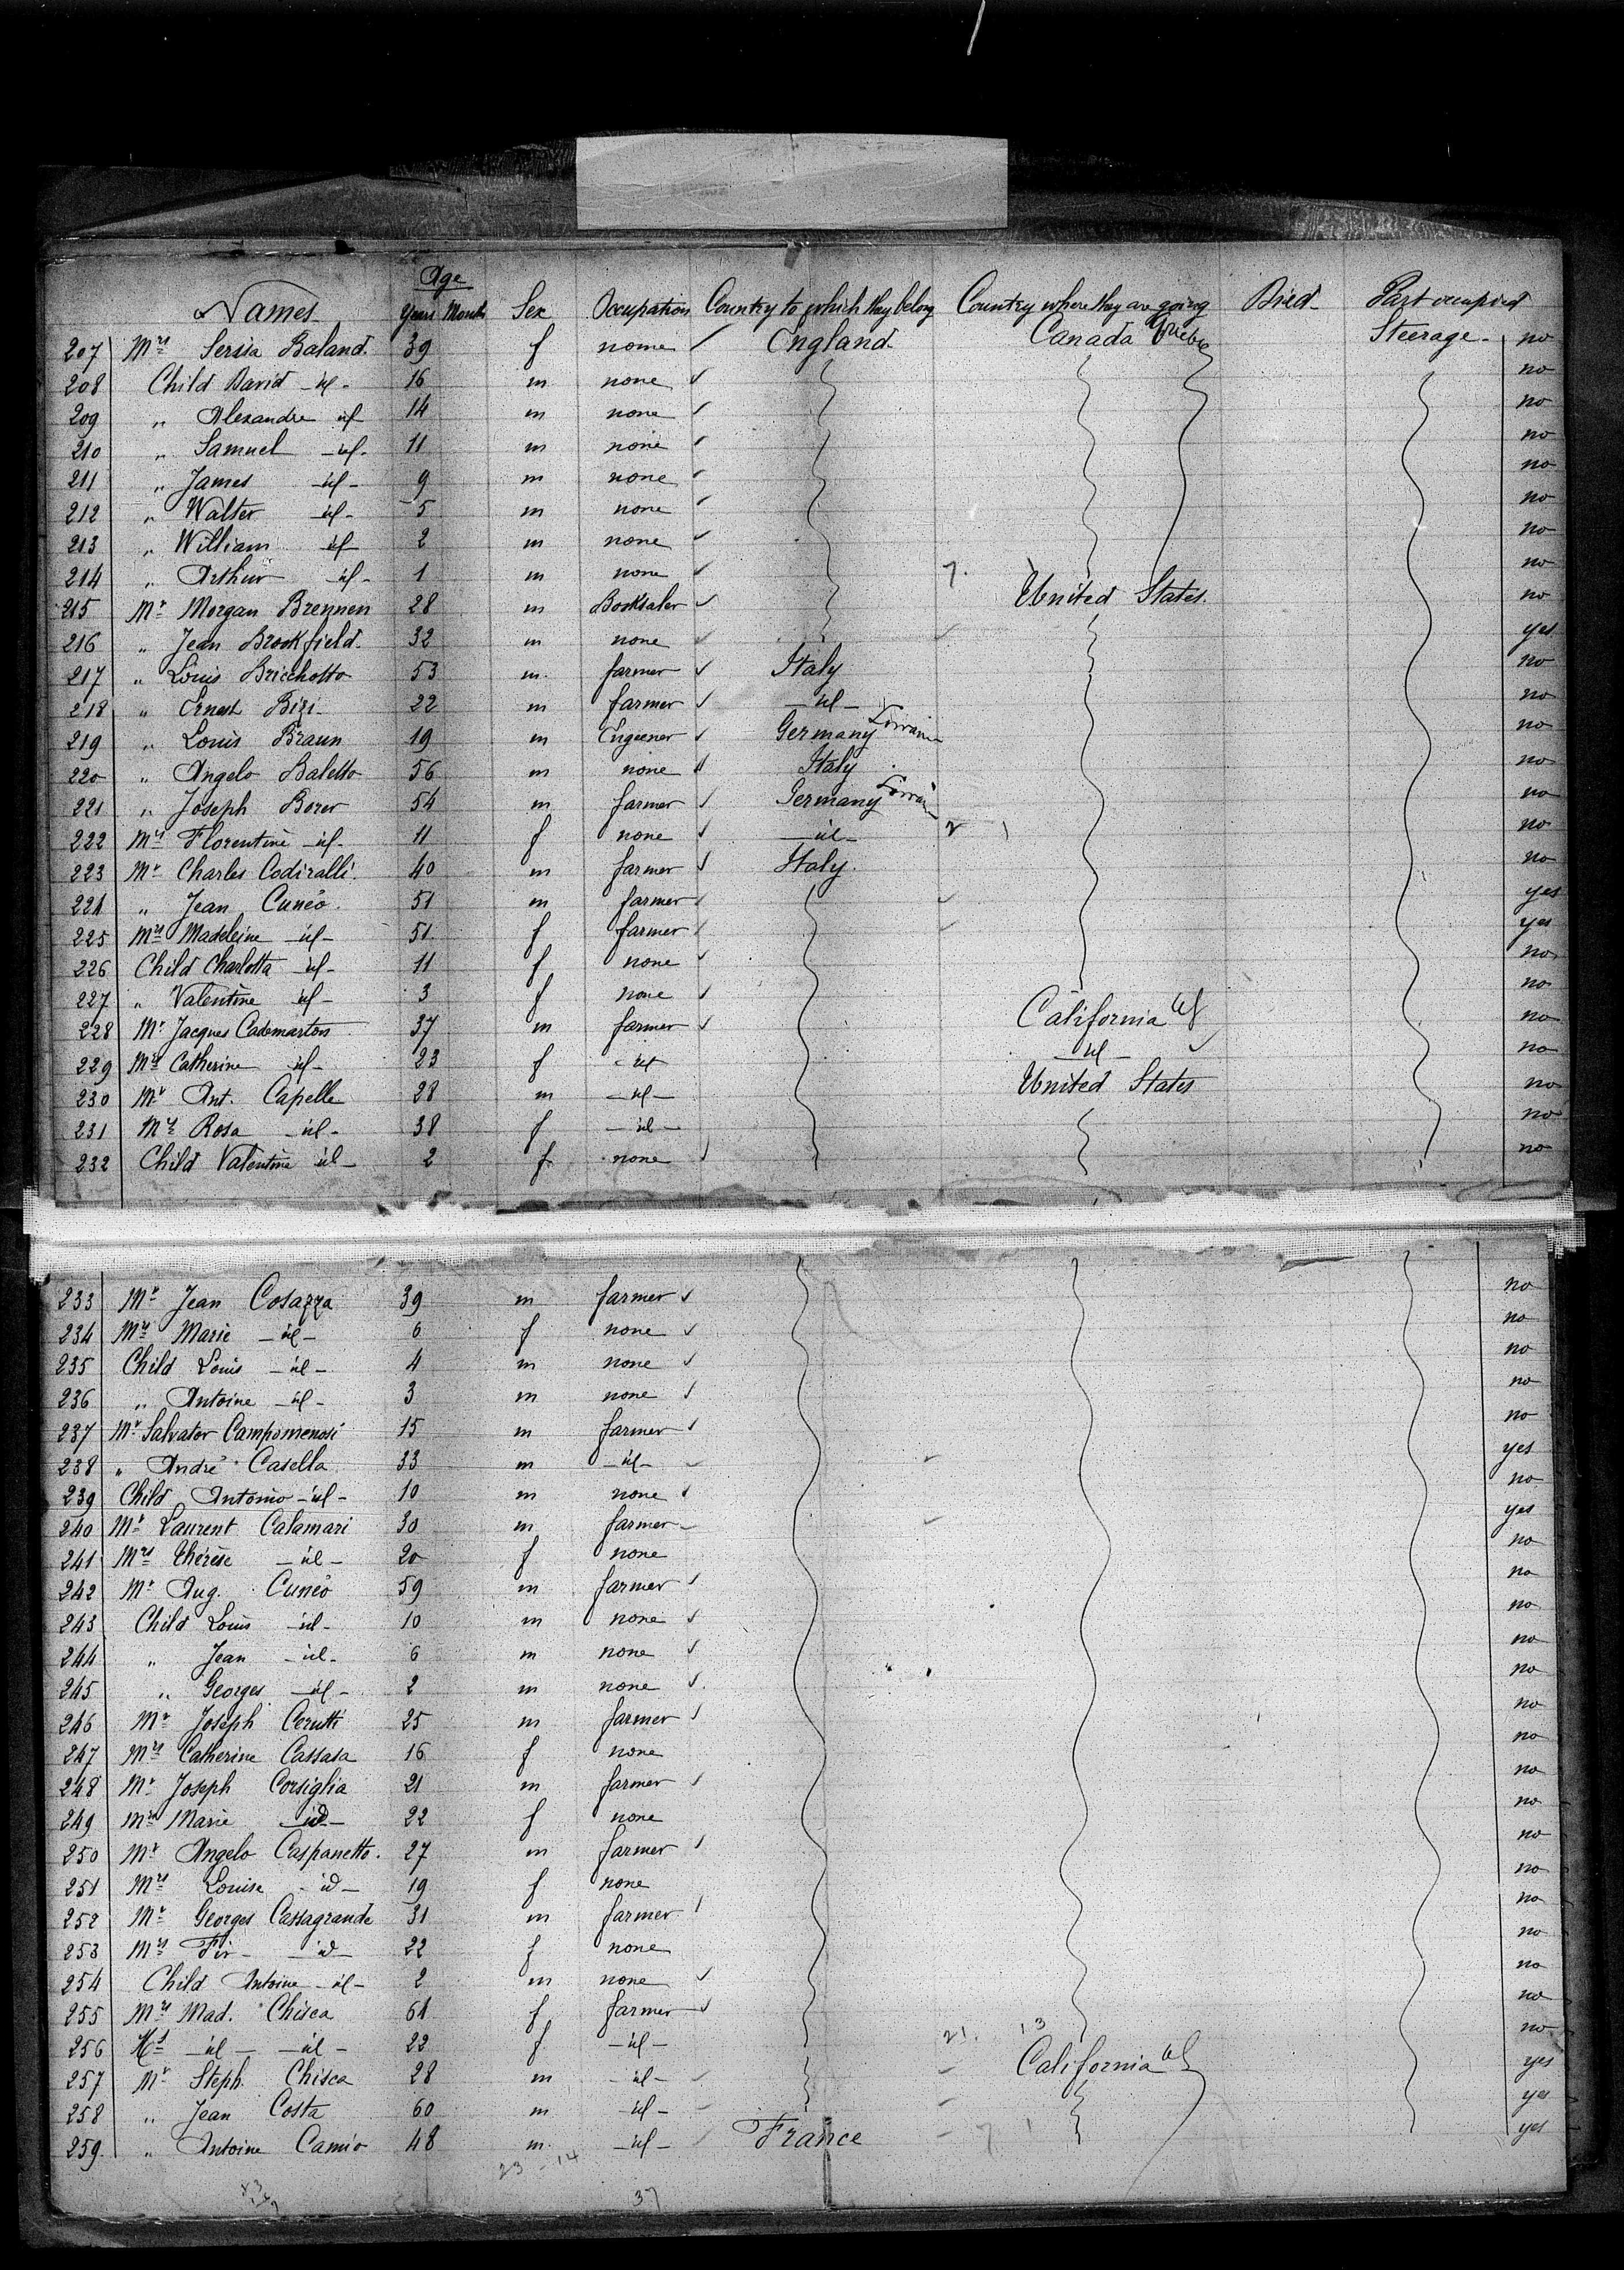 Names Age Years Month Sex Occupation Country to which they belong Country where they are going Died Part occupied
207 Mrs Sersia Baland. 39 f none England. Canada Steerage - no
208 Child David - id - 16 m none no
209 " Alexandre id 14 m none no
210 " Samuel - id - 11 m none no
211 " James - id - 9 m none no
212 " Walter - id - 5 m none no
213 " William id 2 m none no
214 " Arthur id - 1 m none 7. no
215 Mr Morgan Brennen 28 m Booksaler United States. no
216 " Jean Brookfield. 32 m none yes
217 " Louis Bricchotto 53 m. farmer Italy no
218 " Ernest Bizi 22 m farmer - id - no
219 " Louis Braun 19 m Engeener Germany Lorraine no
220 " Angelo Baletto 56 m none Italy no
221 " Joseph Borer 54 m farmer Germany Lorrain no
222 Mrs Florentine id - 11 f none - id - 2 1 no
223 Mr Charles Codiralli. 40 m farmer Italy. no
224 " Jean Cunéo. 51 m farmer yes
225 Mrs Madeleine - id - 51. f farmer yes
226 Child Charlotta - id - 11 f none no
227 " Valentine id - 3 f none no
228 Mr Jacques Cademarton 37 m farmer California no
229 Mrs Catherine id - 23 f - id - id - no
230 Mr Ant. Capelle 28 m - id - United States no
231 Mrs Rosa - id - 38 f - id - no
232 Child Valentine id - 2 f none no
233 Mr Jean Cosazza 39 m farmer no
234 Mrs Marie - id - 6 f none no
235 Child Louis - id - 4 m none no
236 " Antoine - id - 3 m none no
237 Mr Salvator Campomenosi 15 m farmer no
238 " André Casella 33 m - id - yes
239 Child Antonio - id - 10 m none no
240 Mr Laurent Calamari 30 m farmer yes
241 Mrs Thérèse - id - 20 f none no
242 Mr Aug. Cunéo 59 m farmer no
243 Child Louis - id - 10 m none no
244 " Jean - id - 6 m none no
245 " Georges - id - 2 m none no
246 Mr Joseph Cerutti 25 m farmer no
247 Mrs Catherine Cassasa 16 f none no
248 Mr Joseph Corsiglia 21 m farmer no
249 Mrs Marie id - 22 f none no
250 Mr Angelo Caspanetto. 27 m farmer no
251 Mrs Louise - id - 19 f none no
252 Mr Georges Cassagrande 31 m farmer no
253 Mrs Fir - id - 22 f none no
254 Child Antoine - id - 2 m none no
255 Mrs Mad. Chisca 61 f farmer no
256 - id - id - 22 f - id - 21. 13 no
257 Mr Steph. Chisca 28 m - id - California yes
258 " Jean Costa 60 m - id - yes
259. " Antoine Camio 48 m. - id - France 7 1 yes
23 - 14
37